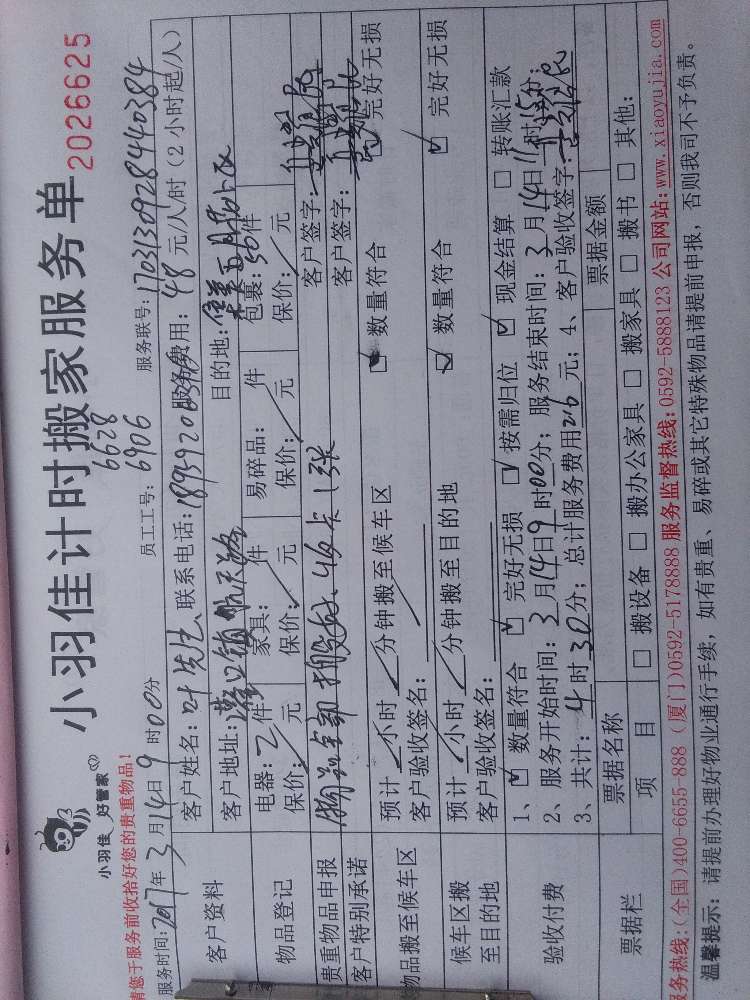 小羽佳计时搬家服务单
2026625
小羽佳 好管家
6628
员工工号: 6906
服务联号: 17031309284403​84
请您于服务前收拾好您的贵重物品!
服务时间: 2017年3月14日9时00分
服务费用: 48元/人/时(2小时起/人)
客户资料
客户姓名: 叶先生
联系电话:
客户地址:
目的地:
物品登记
电器: 件 家具: 件 易碎品: 件 包裹: 50件
保价: 元 保价: 元 保价: 元 保价: 元
贵重物品申报
客户签字:
客户特别承诺
客户签字:
物品搬至候车区
预计 小时 分钟搬至候车区 数量符合 完好无损
客户验收签名:
候车区搬至目的地
预计 小时 分钟搬至目的地 数量符合 完好无损
客户验收签名:
验收付费
1、 数量符合 完好无损 按需归位 现金结算 转账汇款
2、服务开始时间: 3月14日9时00分; 服务结束时间: 3月14日 时 分;
3、共计: 4时30分; 总计服务费用 元; 4、客户验收签字:
票据栏
票据名称 票据金额
项目 搬设备 搬办公家具 搬家具 搬书 其他:
务热线:(全国)400-6655-888 (厦门)0592-5178888 服务监督热线:0592-5888123 公司网站:www.xiaoyujia.com
温馨提示: 请提前办理好物业通行手续, 如有贵重、易碎或其它特殊物品请提前申报, 否则我司不予负责。